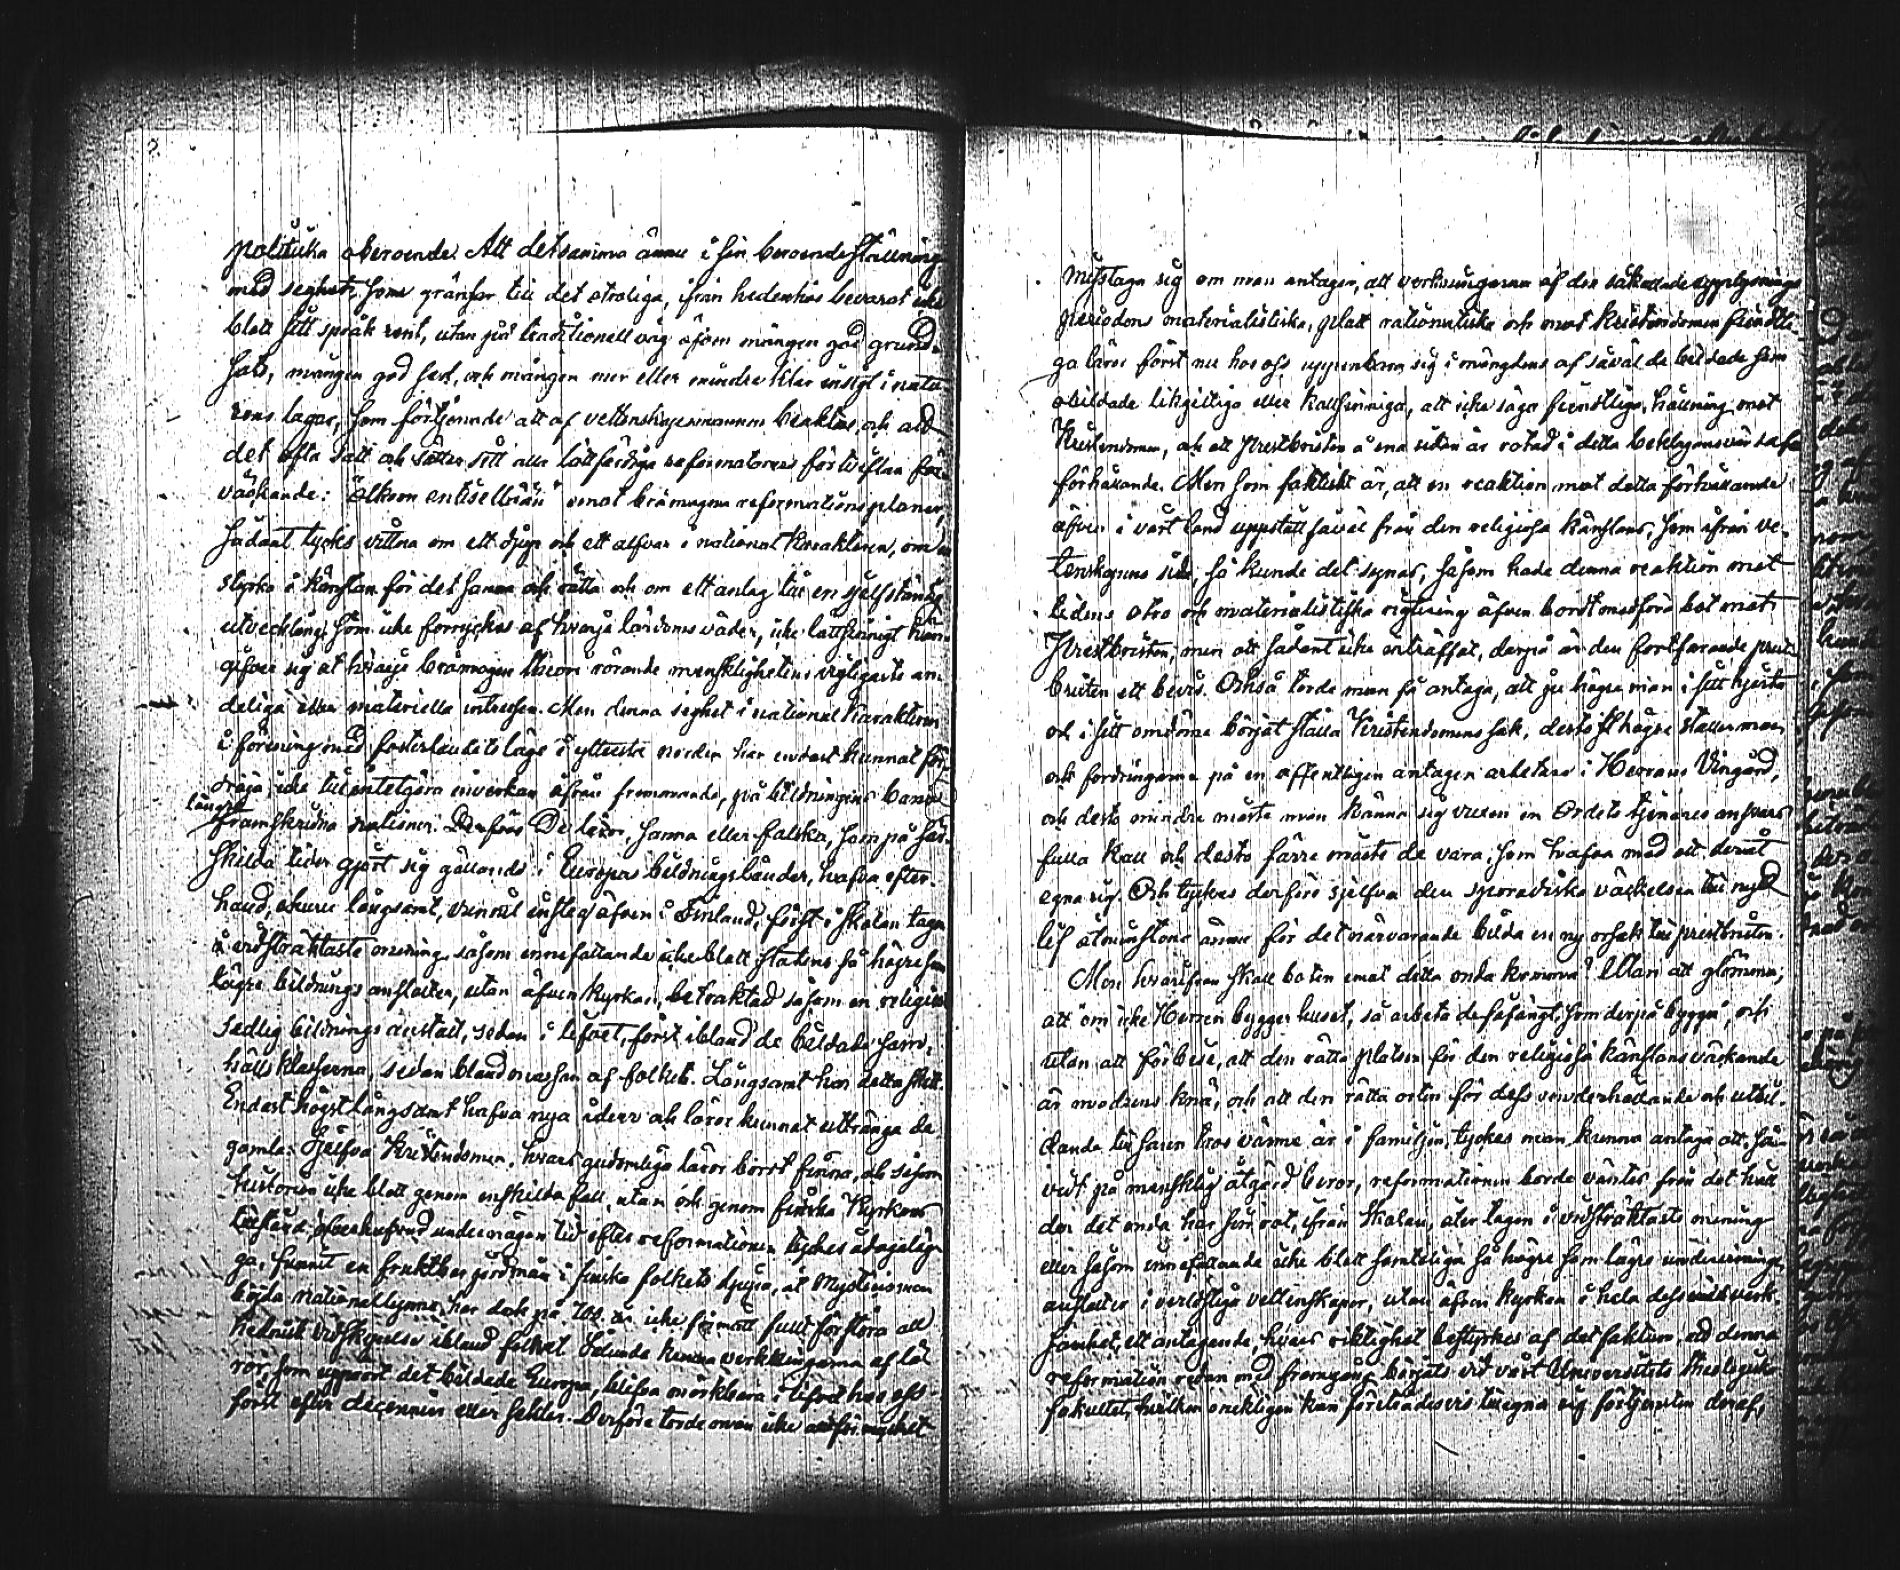 politiska oberoende. Att detsamma ännu i sin beroende ställning
med seghet, som gränsar till det otroliga, ifrån hedenhös bevarat icke
blott sitt språk rent, utan på traditionell väg äfven mången god grund-
sats, mången god sed, och mången mer eller mindre klar insigt i natu-
rens lagar, som förtjenade att af vettenskapsmannen beaktas, och att
det ofta satt och sätter sitt alla lättfärdiga reformatorers förtviflan
väckande: "älköön entiselläni" emot brämogna reformationsplaner,
sådant tyckes vittna om ett djup och ett alfvar i national karakteren, om en
styrka i känslan för det sanna och rätta och om ett anlag till en sjelfständig
utveckling, som icke förryckes af hvarje lärdoms väder, icke lättsinnigt hän-
gifver sig åt hvarje brämogen theori rörande mensklighetens vigtigaste an-
deliga eller materiella intressen. Men denna seghet i national karakteren
i förening med fosterlandets läge i yttersta norden har endast kunnat för-
dröja, icke tillintetgöra inverkan ifrån främmande, på bildningens bana
längre
framskridna nationer. De läror, sanna eller falska, som på sär-
skilda tider gjort sig gällande i Europas bildningsländer, hafva efter-
hand, ehuru långsamt, vunnit insteg äfven i Finland, först i skolan tagen
i vidsträktaste mening, såsom innefattande icke blott statens så högre som
lägre bildnings anstalter, utan äfven kyrkan, betraktad såsom en religiös
sedlig bildnings anstalt, sedan i lifvet, först ibland de bildade sam-
hälls klasserna, sedan bland massan af folket. Långsamt har detta skett.
Endast högst långsamt hafva nya idéer och läror kunnat utträngа de
gamla. Sjelfva Kristendomen, hvars gudomliga läror bordt finna, och såsom
historien icke blott genom enskilda fall, utan och genom finska Kyrkans
tillstånd öfverhufvud under någon tid efter reformationen tyckes ådagaläg-
ga, funnit en fruktbar jordmån i finska folkets djupa, åt Mysticismen
böjda nationallynne, har dock på 700 år icke förmått fullt förstöra all
hednisk vidskepelse ibland folket. Sålunda kunna verkningarna af lä-
ror, som upprört det bildade Europa, blifva märkbara i lifvet hos oss
först efter decennier eller sekler. Derföre torde man icke allt för mycket
misstaga sig om man antager, att verkningarna af den såkallade upplysnings
periodens materialistiska, platt rationalistiska och mot Kristendomen fiendtli-
ga läror först nu hos oss uppenbara sig i mängdens af såväl de bildade som
obildade likgiltiga eller kallsinniga, att icke säga fiendtliga, hållning mot
Kristendomen, och att prestbristen å ena sidan är rotad i detta beklagansvärda
förhållande. Men som faktiskt är, att en reaktion mot detta förhållande
äfven i vårt land uppstått såväl från den religiösa känslans, som ifrån ve-
tenskapens sida, så kunde det synas, såsom hade denna reaktion mot
tidens otro och materialistiska rigtning äfven bordt medföra bot mot
Prestbristen, men att sådant icke inträffat, derpå är den fortfarande prest-
bristen ett bevis. Också torde man få antaga, att ju högre man i sitt hjerta
och i sitt omdöme börjat ställa Kristendomens sak, desto högre ställer man
och fordringarna på en offentligen antagen arbetare i Herrans Vingård,
och desto mindre måste man känna sig vuxen en Ordets tjenares ansvars
fulla kall och desto färre måste de vara, som hafva mod att deråt
egna sig. Och tyckes derföre sjelfva den sporadiska väckelsen till nytt
lif åtminstone ännu för det närvarande bilda en ny orsak till prestbristen.
Men hvarifrån skall boten emot detta onda komma? Utan att glömma,
att "om icke Herren bygger huset, så arbeta de fåfängt, som derpå bygga", och
utan att förbise, att den rätta platsen för den religiösa känslans väckande
är modrens knä, och att den rätta orten för dess vidmakthållande och utbil-
dande till sann tros värme är i familjen, tyckes man kunna antaga att, så-
vidt på mensklig åtgärd beror, reformationen borde väntas från det håll
der det onda har sin rot, ifrån skolan, åter tagen i vidsträktaste mening
eller såsom innefattande icke blott samteliga så högre som lägre undervisnings
anstalter i verldsliga vettenskaper, utan äfven kyrkan i hela dess verk-
samhet, ett antagande, hvars riktighet bestyrkes af det faktum, att denna
reformation redan med framgång börjats vid vårt Universitets theologiska
fakultet, hvilken onekligen kan företrädesvis tillegna sig förtjensten deraf,